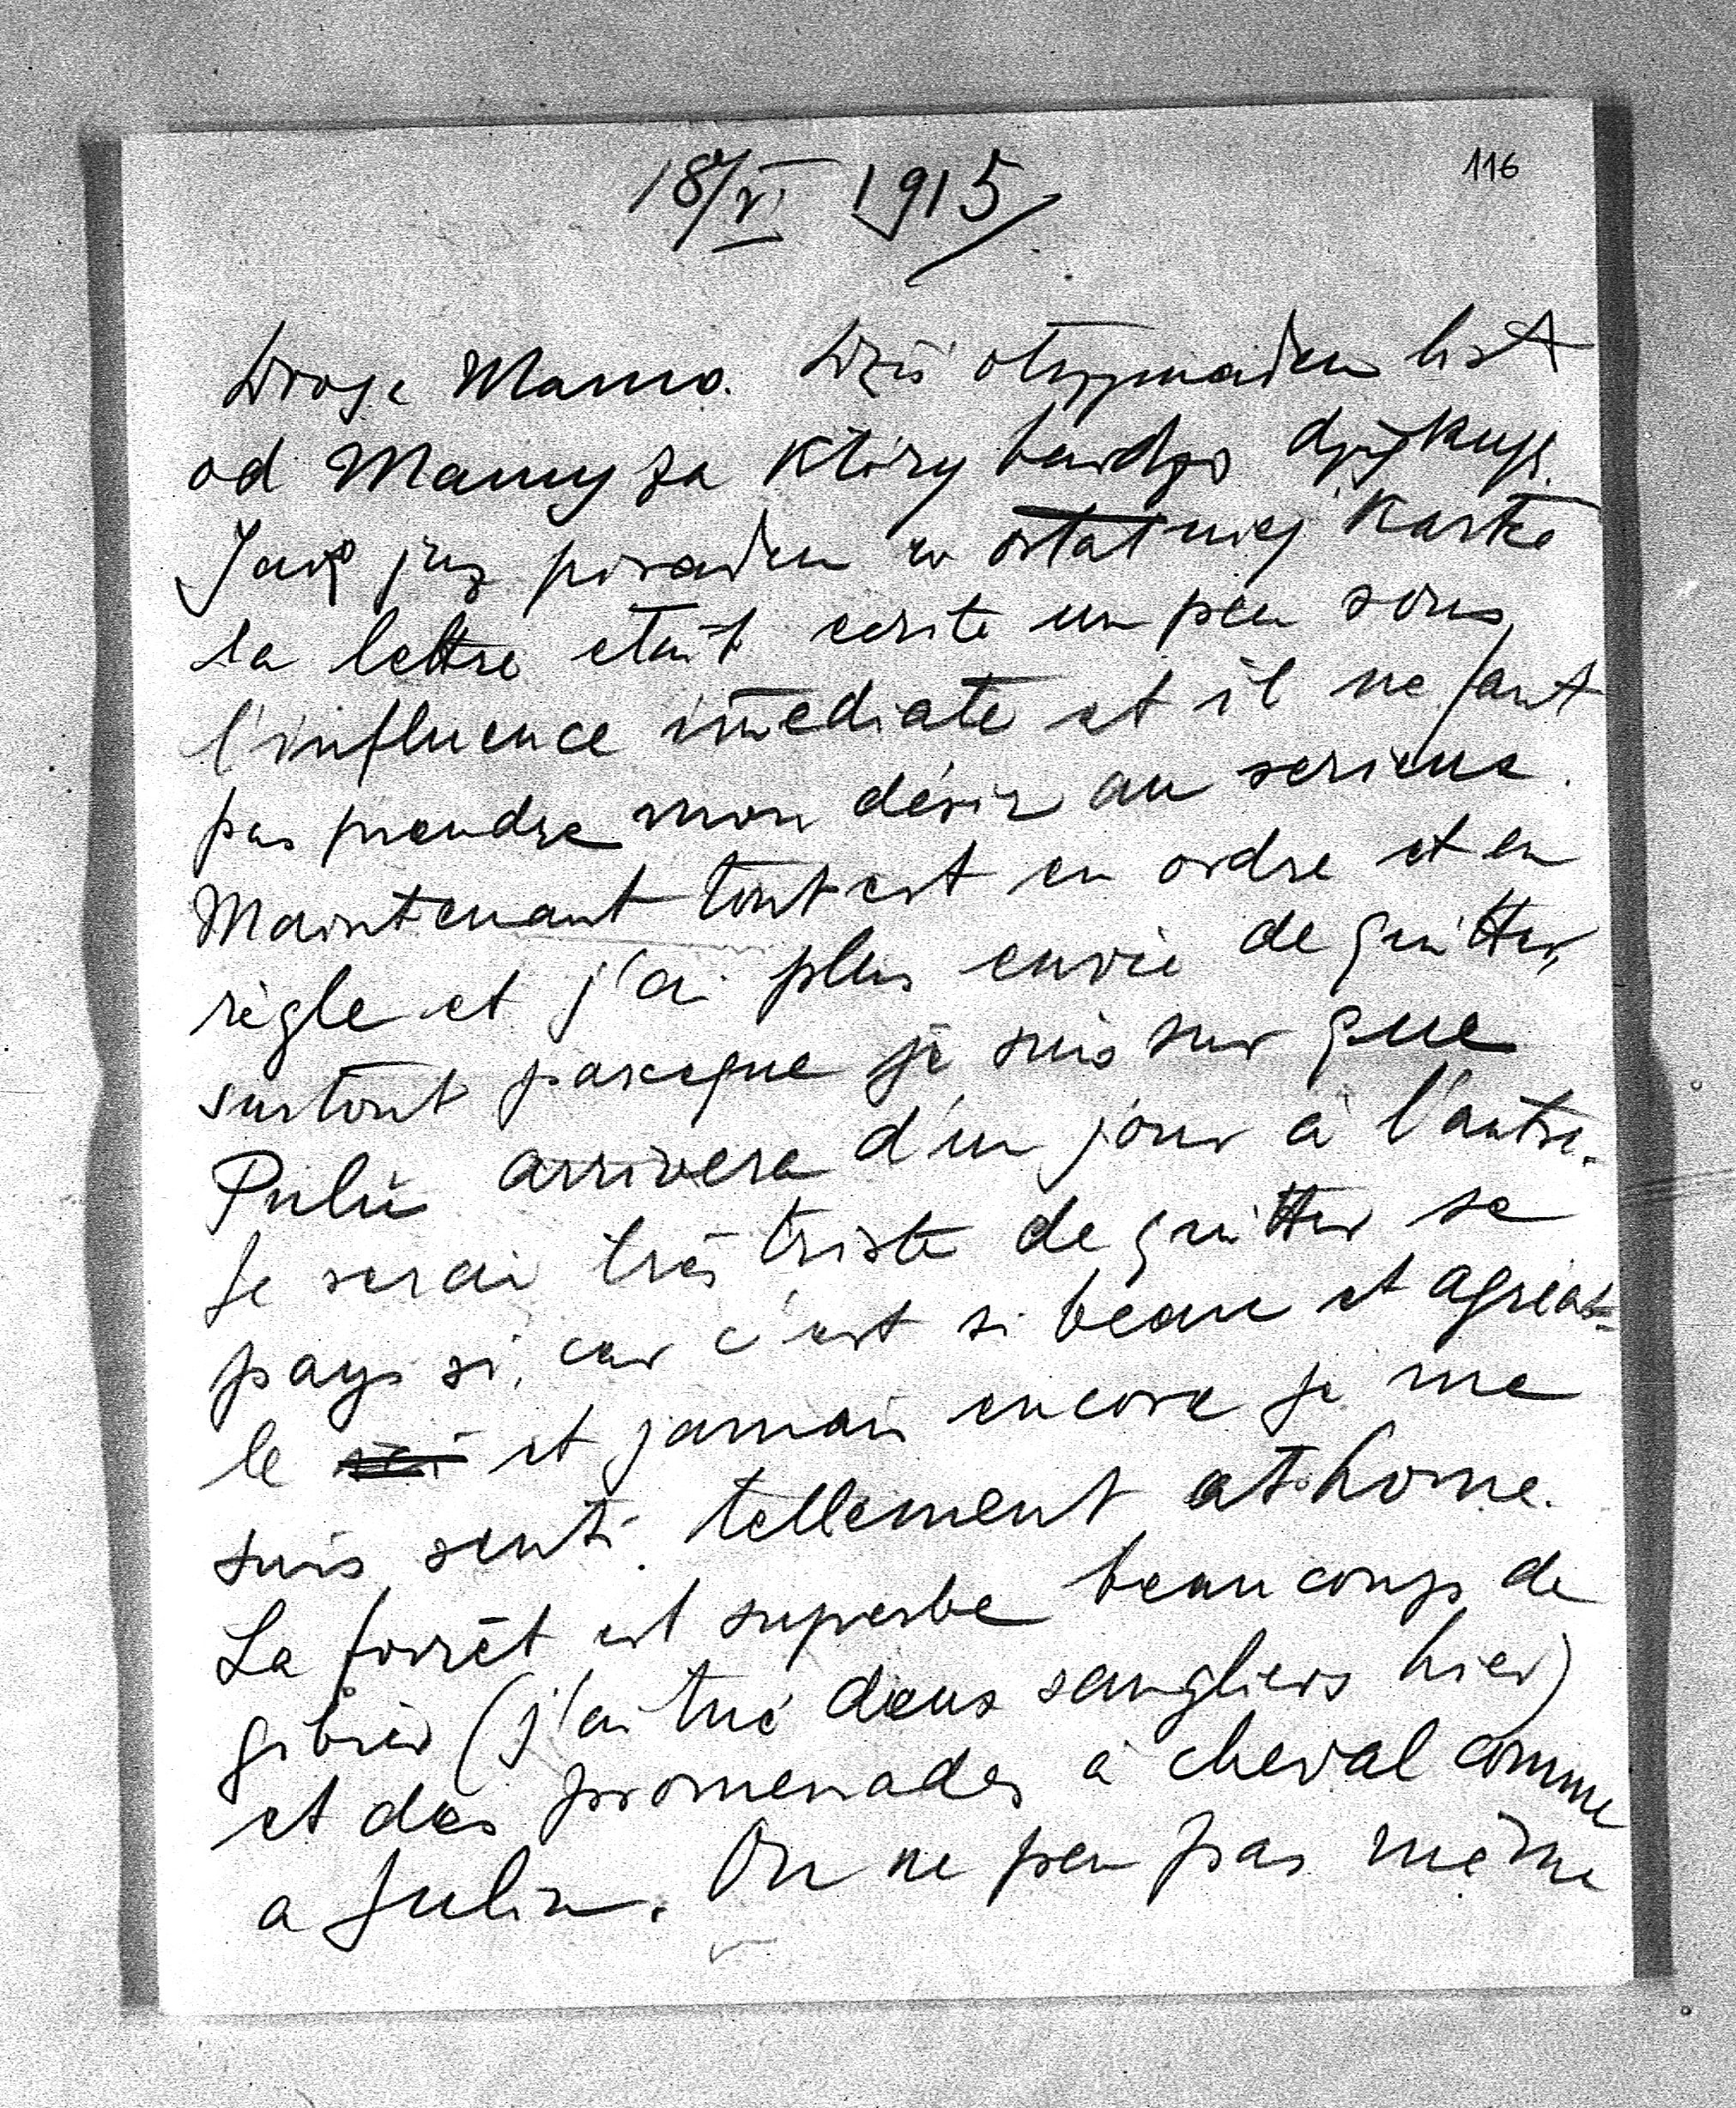 116
18/VI 1915
Droga Mamo. Dziś otrzymałem list
od Mamy za który bardzo dziękuję.
Jak już pisałem w ostatniej kartce
la lettre etait ecrite un peu sous
l'influence imediate et il ne faut
pas prendre mon désir au serieux.
Maintenant tout est en ordre et en
règle et j'ai plus envie de quitter,
surtout parceque je suis sur que
arrivera d'un jour à l'autre.
Je serai très triste de quitter se
pays si, car c'est si beau et agreab=
le et jamais encore je me
suis senti tellement at home.
La forrêt est superbe beaucoup de
gibier (j'ai tué deux sangliers hier)
et des promenades à cheval comme
a Julin. On ne peu pas même